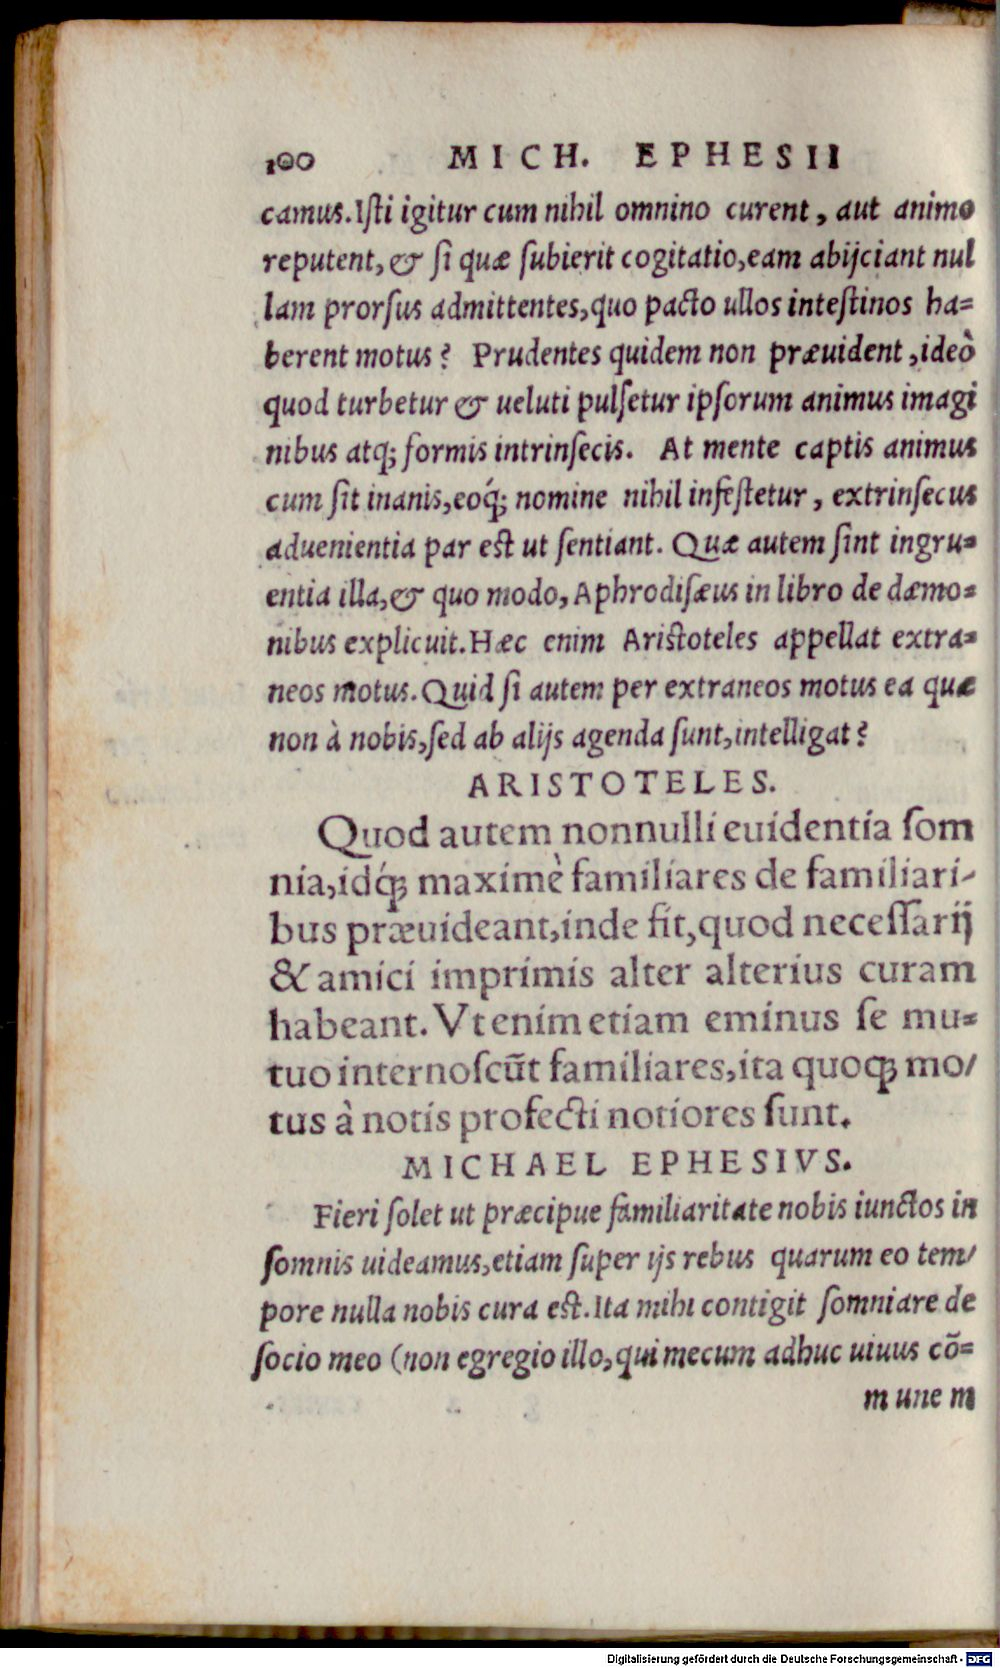 100 MICH. EPHESII
camus. Isti igitur cum nihil omnino curent, aut animo
reputent, & si quæ subierit cogitatio, eam abijciant nul
lam prorsus admittentes, quo pacto ullos intestinos ha=
berent motus? Prudentes quidem non præuident, ideò
quod turbetur & ueluti pulsetur ipsorum animus imagi
nibus atq; formis intrinsecis. At mente captis animus
cum sit inanis, eoq́; nomine nihil infestetur, extrinsecus
aduenientia par est ut sentiant. Quæ autem sint ingru=
entia illa, & quo modo, Aphrodisæus in libro de dæmo=
nibus explicuit. Hæc enim Aristoteles appellat extra=
neos motus. Quid si autem per extraneos motus ea quæ
non à nobis, sed ab alijs agenda sunt, intelligat?
ARISTOTELES.
Quod autem nonnulli euidentia som
nia, idq́; maximè familiares de familiari-
bus præuideant, inde fit, quod necessarij
& amici imprimis alter alterius curam
habeant. Vt enim etiam eminus se mu=
tuo internoscūt familiares, ita quoq; mo/
tus à notis profecti notiores sunt.
MICHAEL EPHESIVS.
Fieri solet ut præcipue familiaritate nobis iunctos in
somnis uideamus, etiam super ijs rebus quarum eo tem/
pore nulla nobis cura est. Ita mihi contigit somniare de
socio meo (non egregio illo, qui mecum adhuc uiuus cō=
mune m
Digitalisierung gefördert durch die Deutsche Forschungsgemeinschaft - DFG